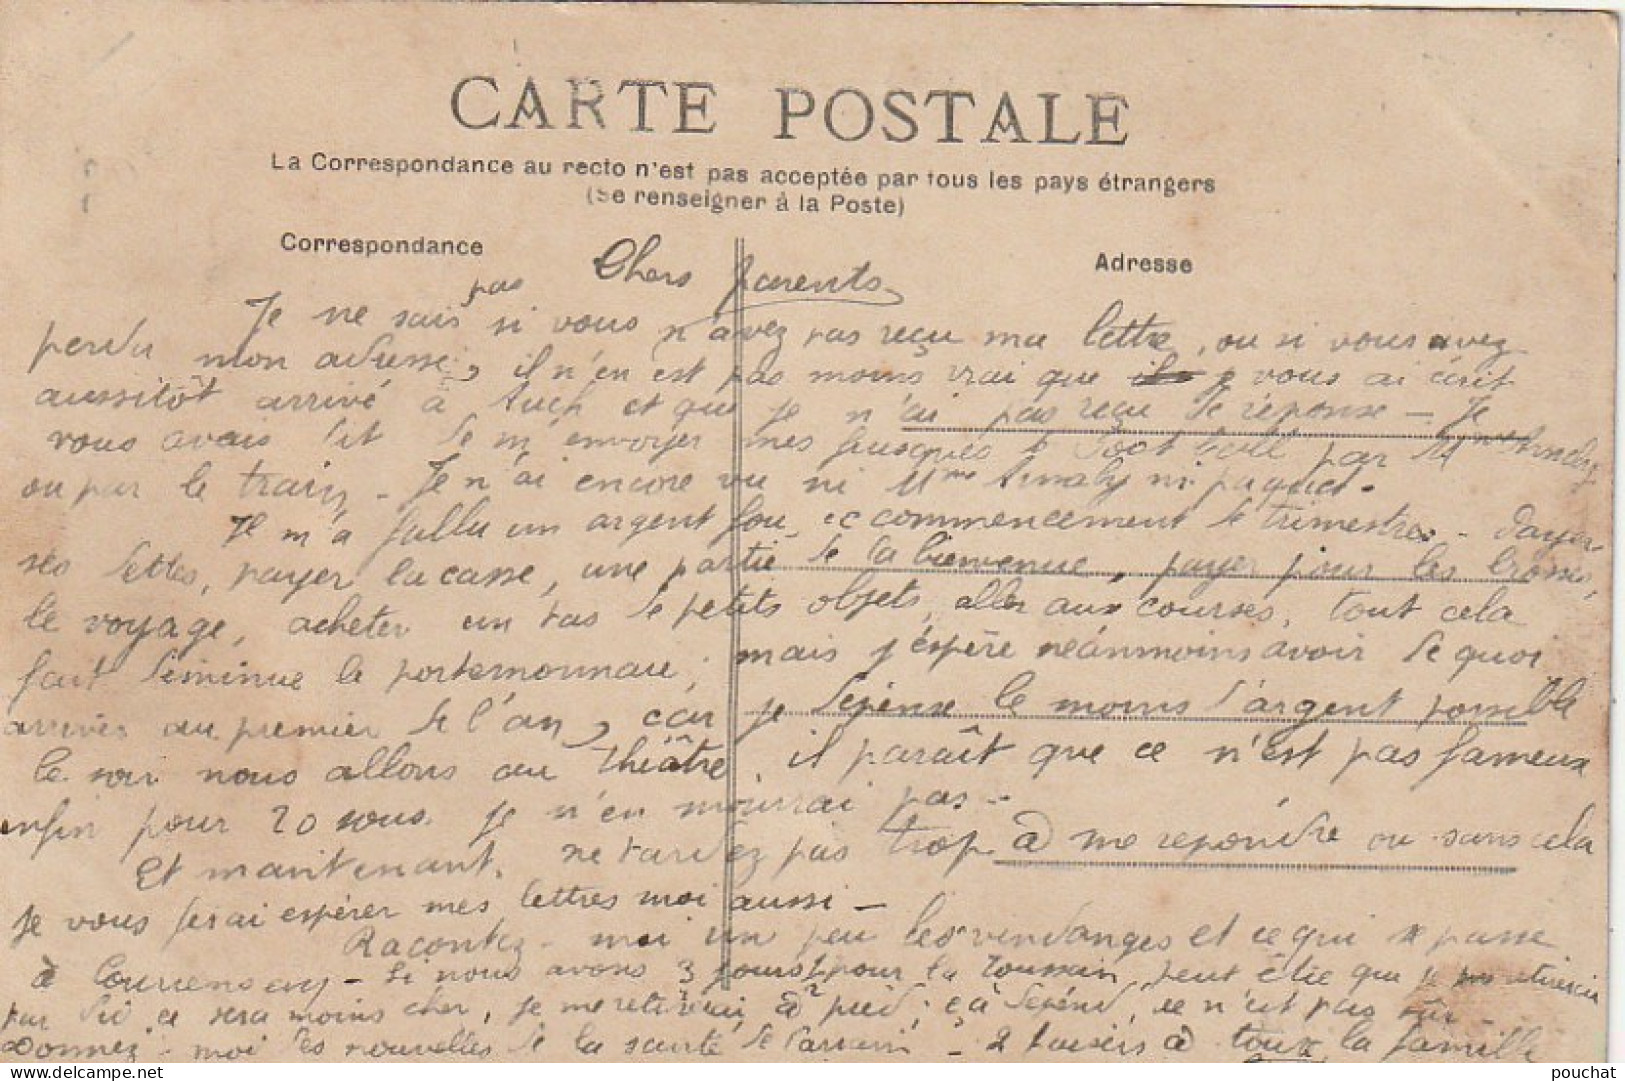 CARTE POSTALE
La Correspondance au recto n'est pas acceptée par tous les pays étrangers
(Se renseigner à la Poste)
Correspondance
Adresse
Chers parents
pas
Je ne sais si vous n'avez pas reçu ma lettre, ou si vous avez
perdu mon adresse, il n'en est pas moins vrai que je vous ai écrit
aussitôt arrivé à Auch et que je n'ai pas reçu de réponse - Je
vous avais dit de m'envoyer mes de foot ball par Mme
ou par le train - Je n'ai encore vu ni Mme ni paquet.
Il m'a fallu un argent fou, commencement de trimestre - payer
ses dettes, payer la casse, une partie de la bienvenue, payer pour les
le voyage, acheter un tas de petits objets, aller aux courses, tout cela
fait diminue le portemonnaie; mais j'espère néanmoins avoir de quoi
arriver au premier de l'an, car je dépense le moins d'argent possible
le soir nous allons au théâtre, il paraît que ce n'est pas fameux
enfin pour 20 sous je n'en mourrai pas -
Et maintenant, ne tardez pas trop à me repondre ou sans cela
je vous ferai espérer mes lettres moi aussi -
Racontez-moi un peu les vendanges et ce qui se passe
à Courrensan - Si nous avons 3 jours pour la Toussain, peut être que je
par ce sera moins cher, je me à pied; ça dépend, ce n'est pas sûr -
Donnez-moi des nouvelles de la santé de - 2 baisers à toute la famille
pouchat